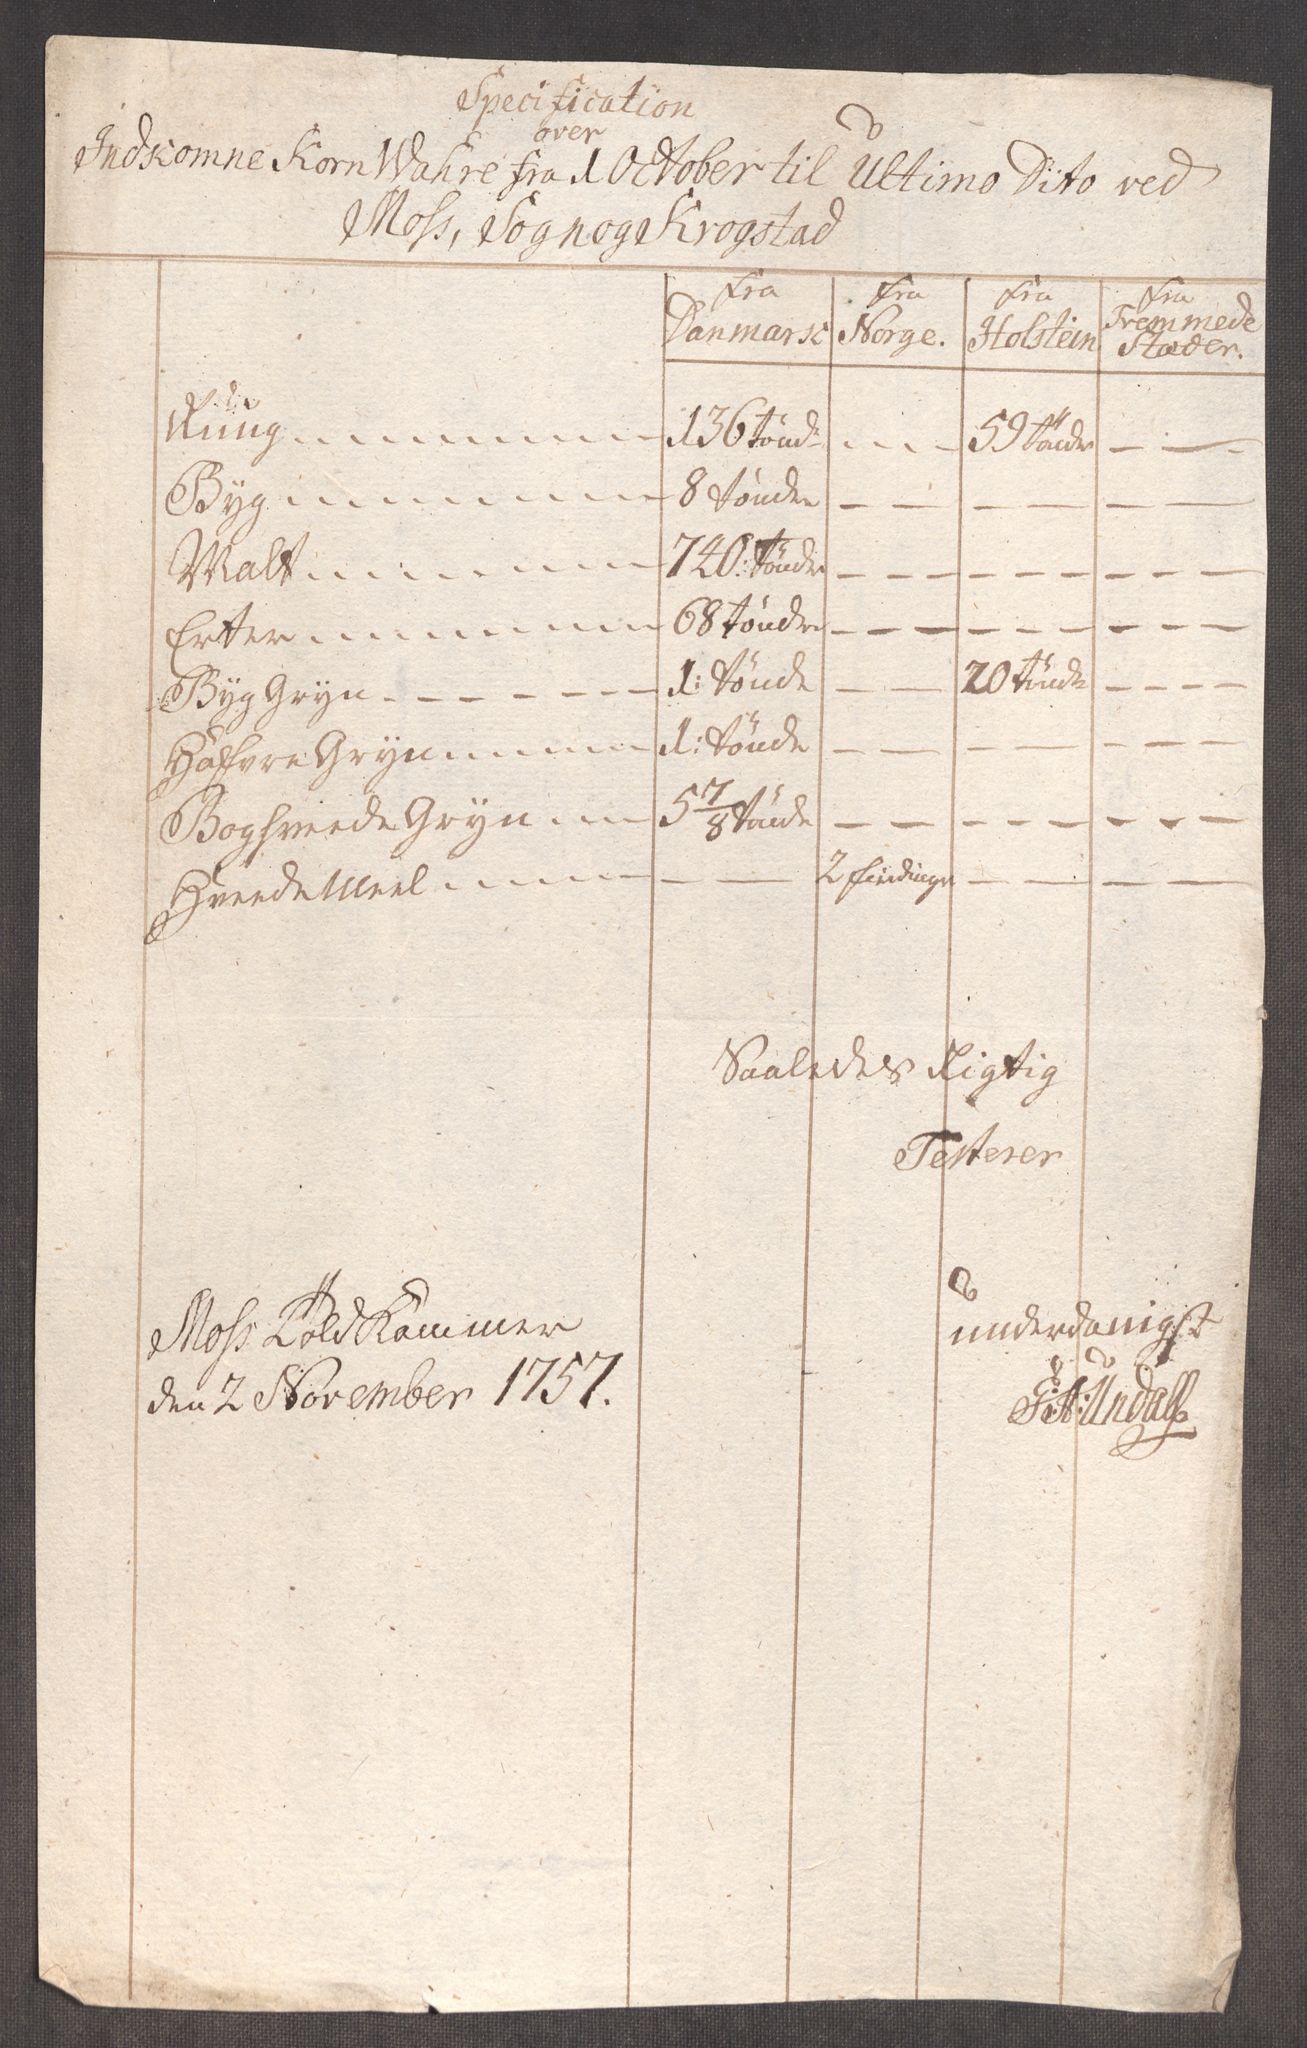 Specification
over
Indkomne Korn Wahre fra 1 October til Ultimo Dito ved
Moss, Sogn og Krogstad
fra Danmark fra Norge. fra Holstein fra Fremmede Stæder.
Rug 136 tønd 59 tønder
Byg 8 tønder
Malt 740: tønder
Erter 68 tønder
Byg Gryn 1: tønde 20 tønde
Haffre Gryn 1: tønde
Boghveede Gryn 5 7/8 tønde
Hveede Meel 2 fierdinger
Saaledes Rigtig
Testerer
Moss Told Kammer underdanigst
den 2 November 1757.